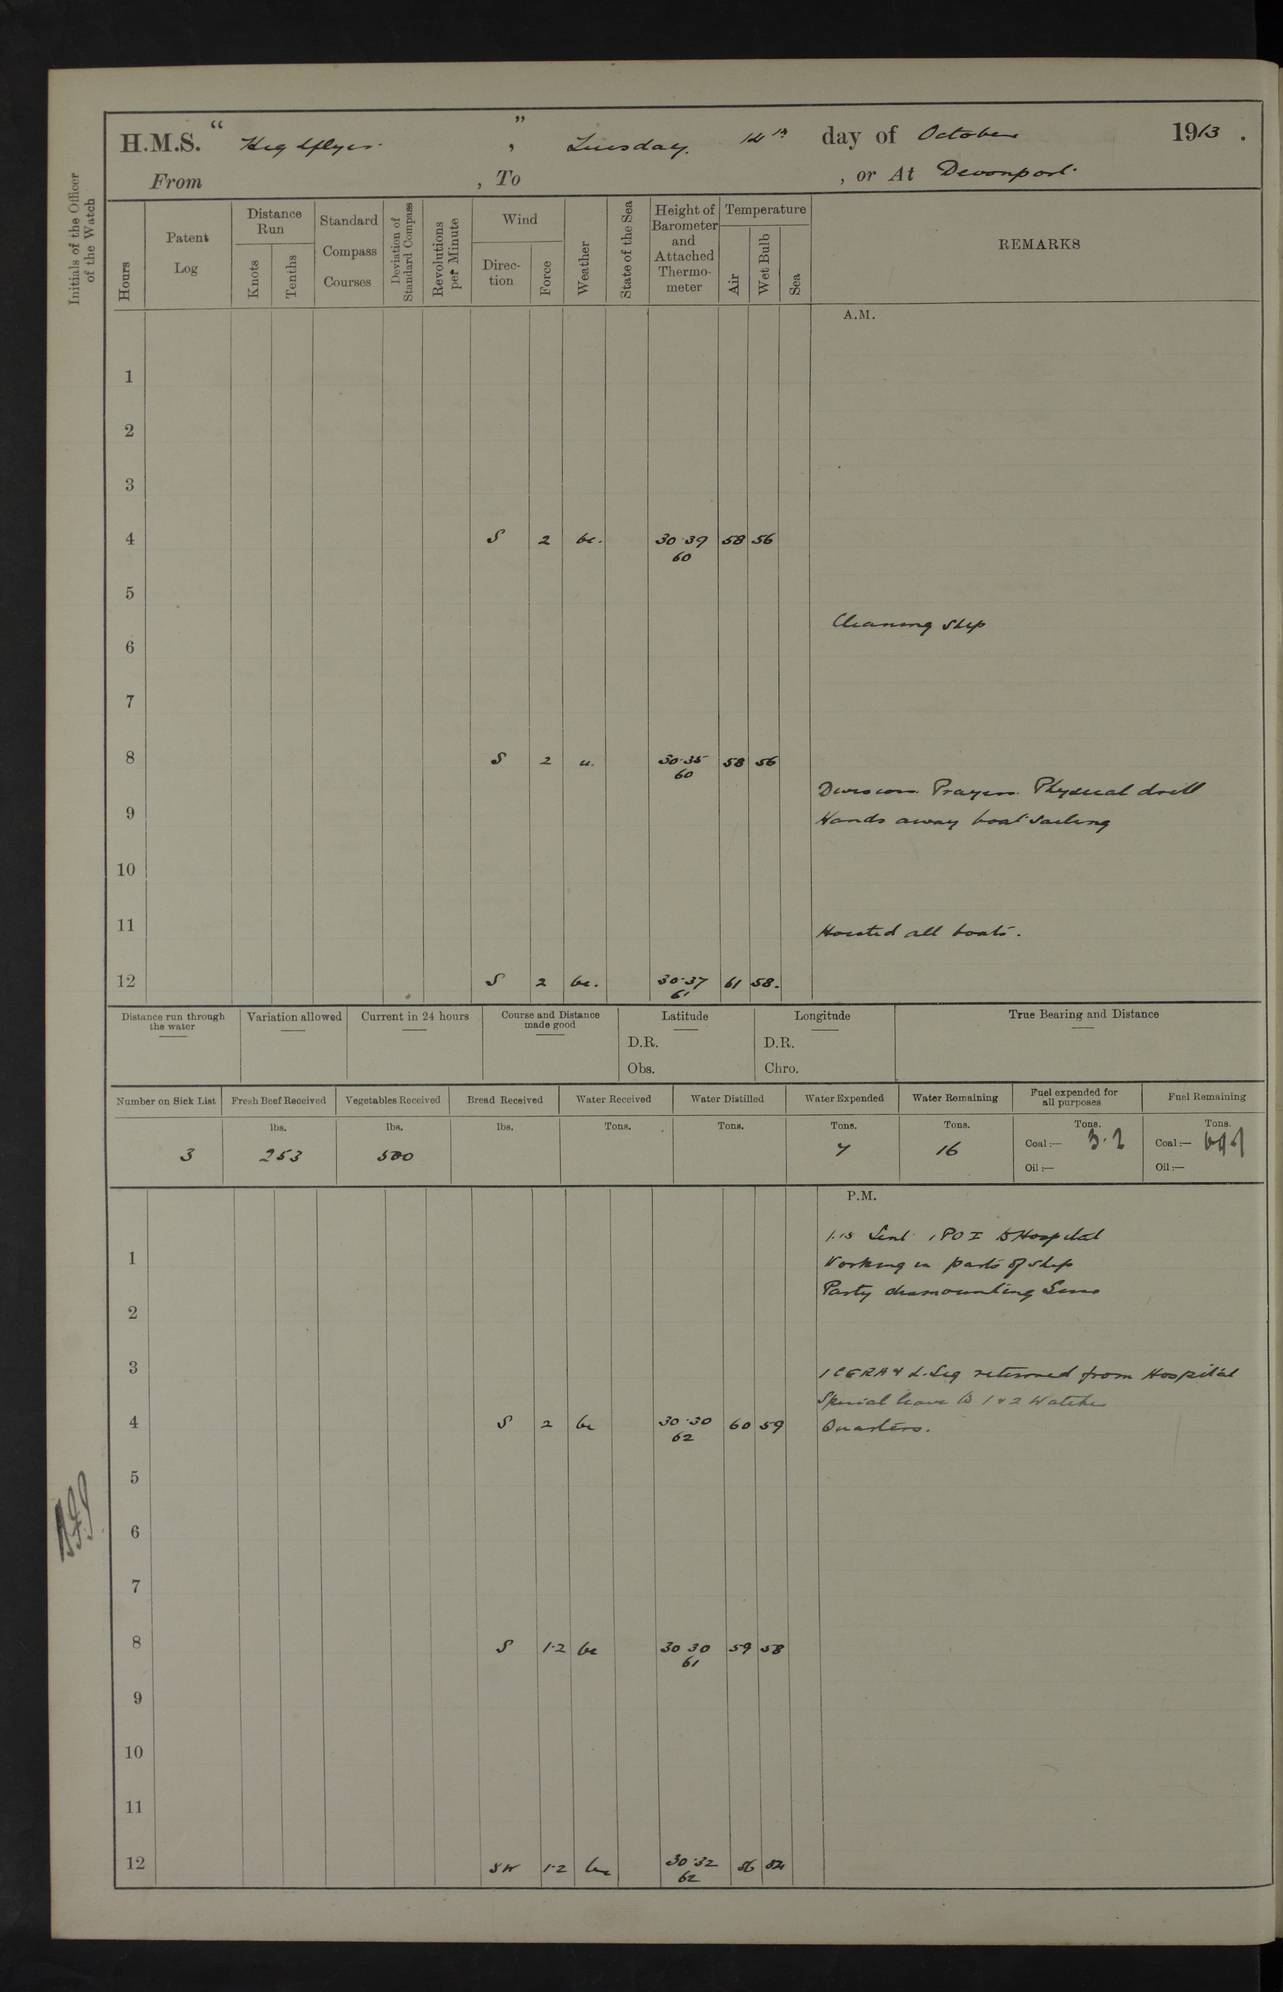 H.M.S. "Highflyer.", Tuesday. 14th day of October 1913.
From , To , or At Devonport.
Initials of the Officer of the Watch
Hours
Patent Log
Distance Run
Knots
Tenths
Standard Compass Courses
Deviation of Standard Compass
Revolutions per Minute
Wind
Direction
Force
Weather
State of the Sea
Height of Barometer and Attached Thermometer
Temperature
Air
Wet Bulb
Sea
REMARKS
A.M.
1
2
3
4 S 2 bc. 30.39 58 56
60
5
Cleaning ship
6
7
8 S 2 u. 30.35 58 56
60
Divisions. Prayers. Physical drill
9 Hands away boat sailing
10
11 Hoisted all boats.
12 S 2 bc. 30.37 61 58.
61
Distance run through the water
Variation allowed
Current in 24 hours
Course and Distance made good
Latitude
D.R.
Obs.
Longitude
D.R.
Chro.
True Bearing and Distance
Number on Sick List
Fresh Beef Received
Vegetables Received
Bread Received
Water Received
Water Distilled
Water Expended
Water Remaining
Fuel expended for all purposes
Fuel Remaining
lbs. lbs. lbs. Tons. Tons. Tons. Tons. Tons. Tons.
3 253 500 7 16 Coal:— 3.2 Coal:—
Oil:— Oil:—
P.M.
1.15 Sent 1 PO I to Hospital
1 Working in parts of ship
Party dismounting Guns
2
3 1 CERA & L.Sig returned from Hospital
Special leave to 1 & 2 Watches
4 S 2 bc 30.30 60 59 Quarters.
62
5
6
7
8 S 1.2 bc 30 30 59 58
61
9
10
11
12 SW 1.2 bc 30.32 56 54
62